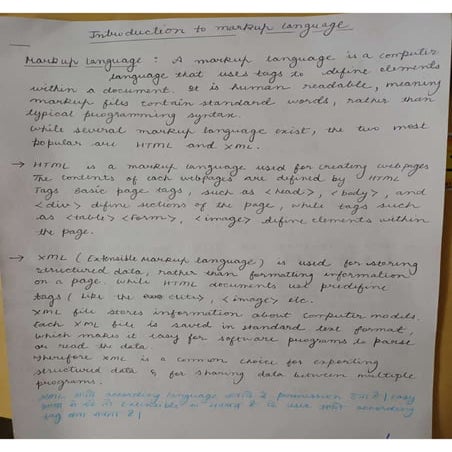 Introduction to markup language
Markup language : A markup language is a computer
language that uses tags to define elements
within a document. It is human readable, meaning
markup files contain standard words, rather than
typical programming syntax.
while several markup language exist, the two most
popular are HTML and XML.
→ HTML is a markup language used for creating webpages
The contents of each webpages are defined by HTML
Tags. Basic page tags, such as <head>, <body>, and
<div> define sections of the page, while tags such
as <table> <Form>, <image> define elements within
the page.
→ XML (Extensible Markup language) is used for storing
structured data, rather than formatting information
on a page. While HTML documents use predefine
tags (like the <title>, <image> etc.
XML file stores information about computer models.
Each XML file is saved in standard text format,
which makes it easy for software programs to parse
or read the data.
Therefore XML is a common choice for exporting
structured data & for sharing data between multiple
programs.
XML according language permission है | easy
extensible to use according
tag बना सकते है |